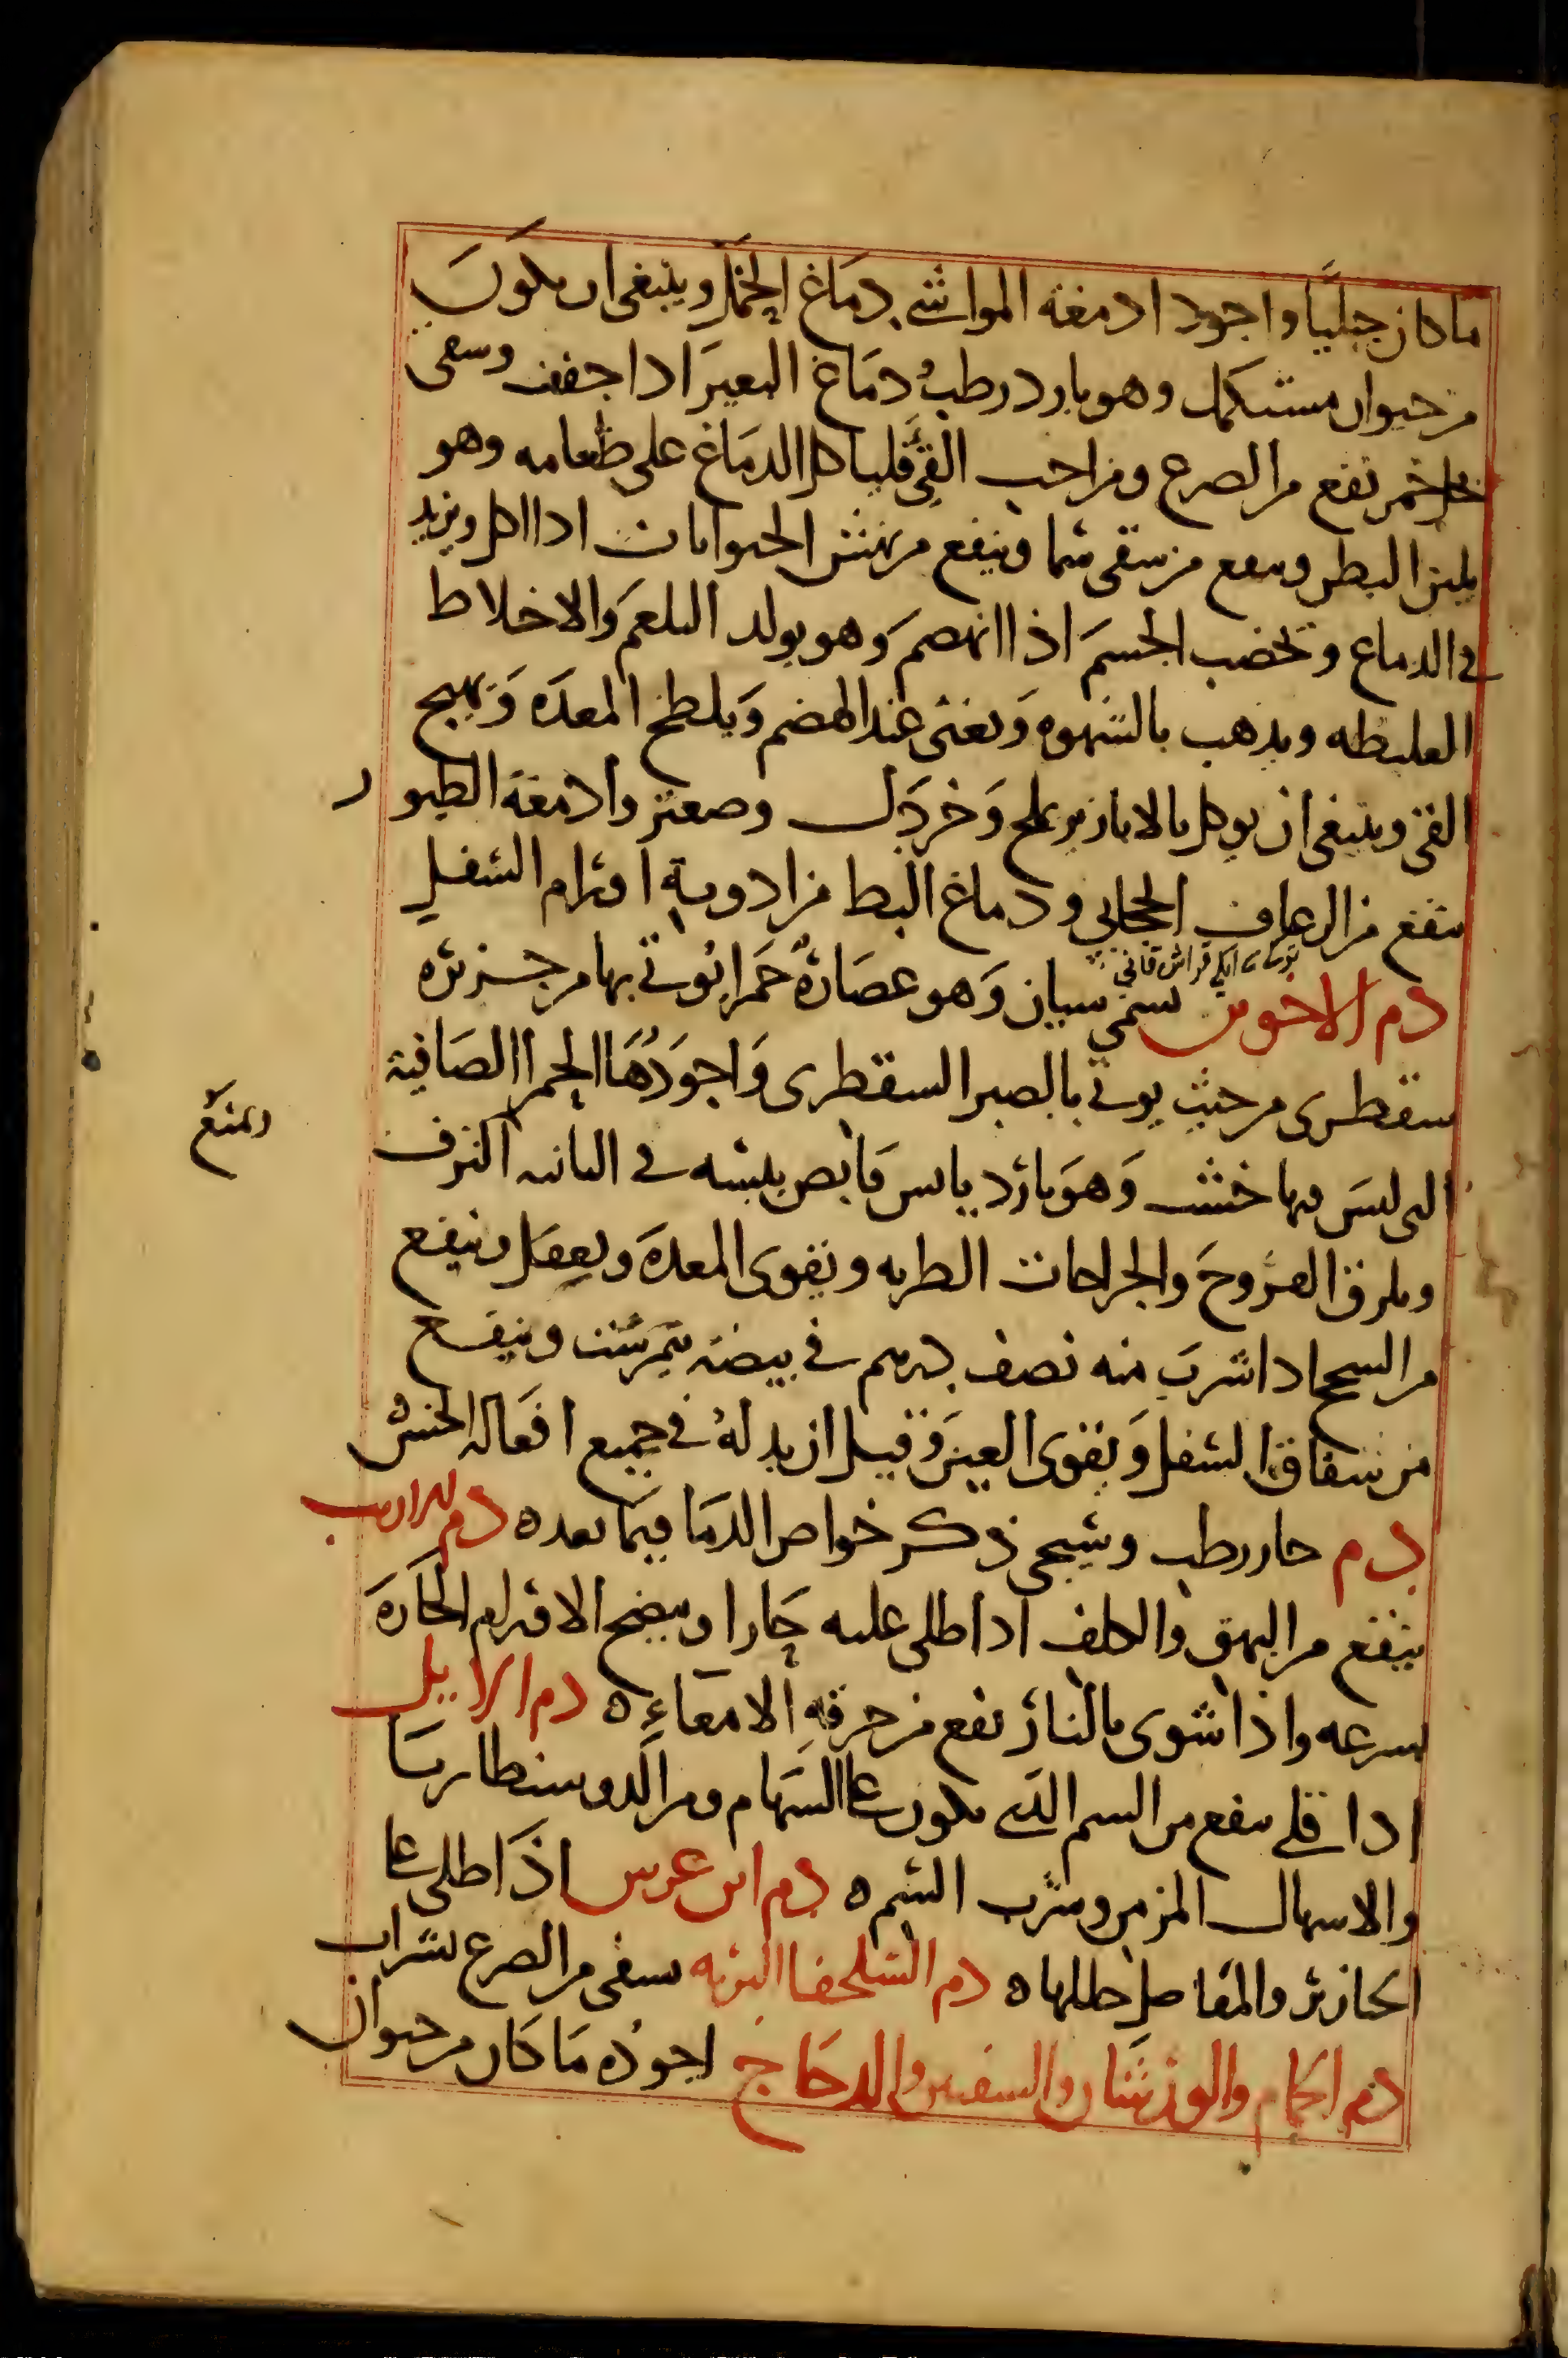 ما كان جبليا واجود ادمغة المواشي دماغ الجمل وينبغي ان يكون
من حيوان مستكمل وهو بارد رطب دماغ البعير اذا جفف وسقي
بخل خمر نفع من الصرع ومن احب القئ فلياكل الدماغ على طعامه وهو
يلين البطن وينفع من سقي سما وينفع من نهش الحيوانات اذا اكل ويزيد
في الدماغ ويخصب الجسم اذا انهضم وهو يولد البلغم والاخلاط
الغليظه ويذهب بالشهوه ويغثي عند الهضم ويلطخ المعده ويهيج
القئ وينبغي ان يوكل بالابازير بملح وخردل وصعتر وادمغة الطيور
ينفع من الرعاف الحجابي ودماغ البط من ادوية اورام السفل
دم الاخوين يسمى سيان وهو عصارة حمرا يوتى بها من جزيره
سقطرى من حيث يوتى بالصبر السقطرى واجودها الحمرا الصافية
التي ليس فيها خشب وهو بارد يابس قابض يبسه في الثانيه النزف
ويمنع
ويلزق القروح والجراحات الطريه ويقوى المعدة ويعقل وينفع
من السحج اذا شرب منه نصف درهم في بيضة نيمرشت وينفع
من شقاق السفل ويقوى العين وقيل ان بدله في جميع افعاله الخس
دم حار رطب وسيجي ذكر خواص الدما فيما بعد ه دم الارانب
ينفع من البهق والكلف اذا طلى عليه حارا وينضج الاورام الحارة
بسرعه واذا شوى بالنار نفع من حرقة الامعاء ه دم الايل
اذا قلي ينفع من السم الذي يكون على السهام ومن الدوسنطاريا
والاسهال المزمن وشرب السم ه دم ابن عرس اذا طلى على
الخنازير والمفاصل حللها ه دم السلحفا البريه يسقى من الصرع بشراب
دم الحمام والورشان والشفنين والدجاج اجوده ما كان من حيوان